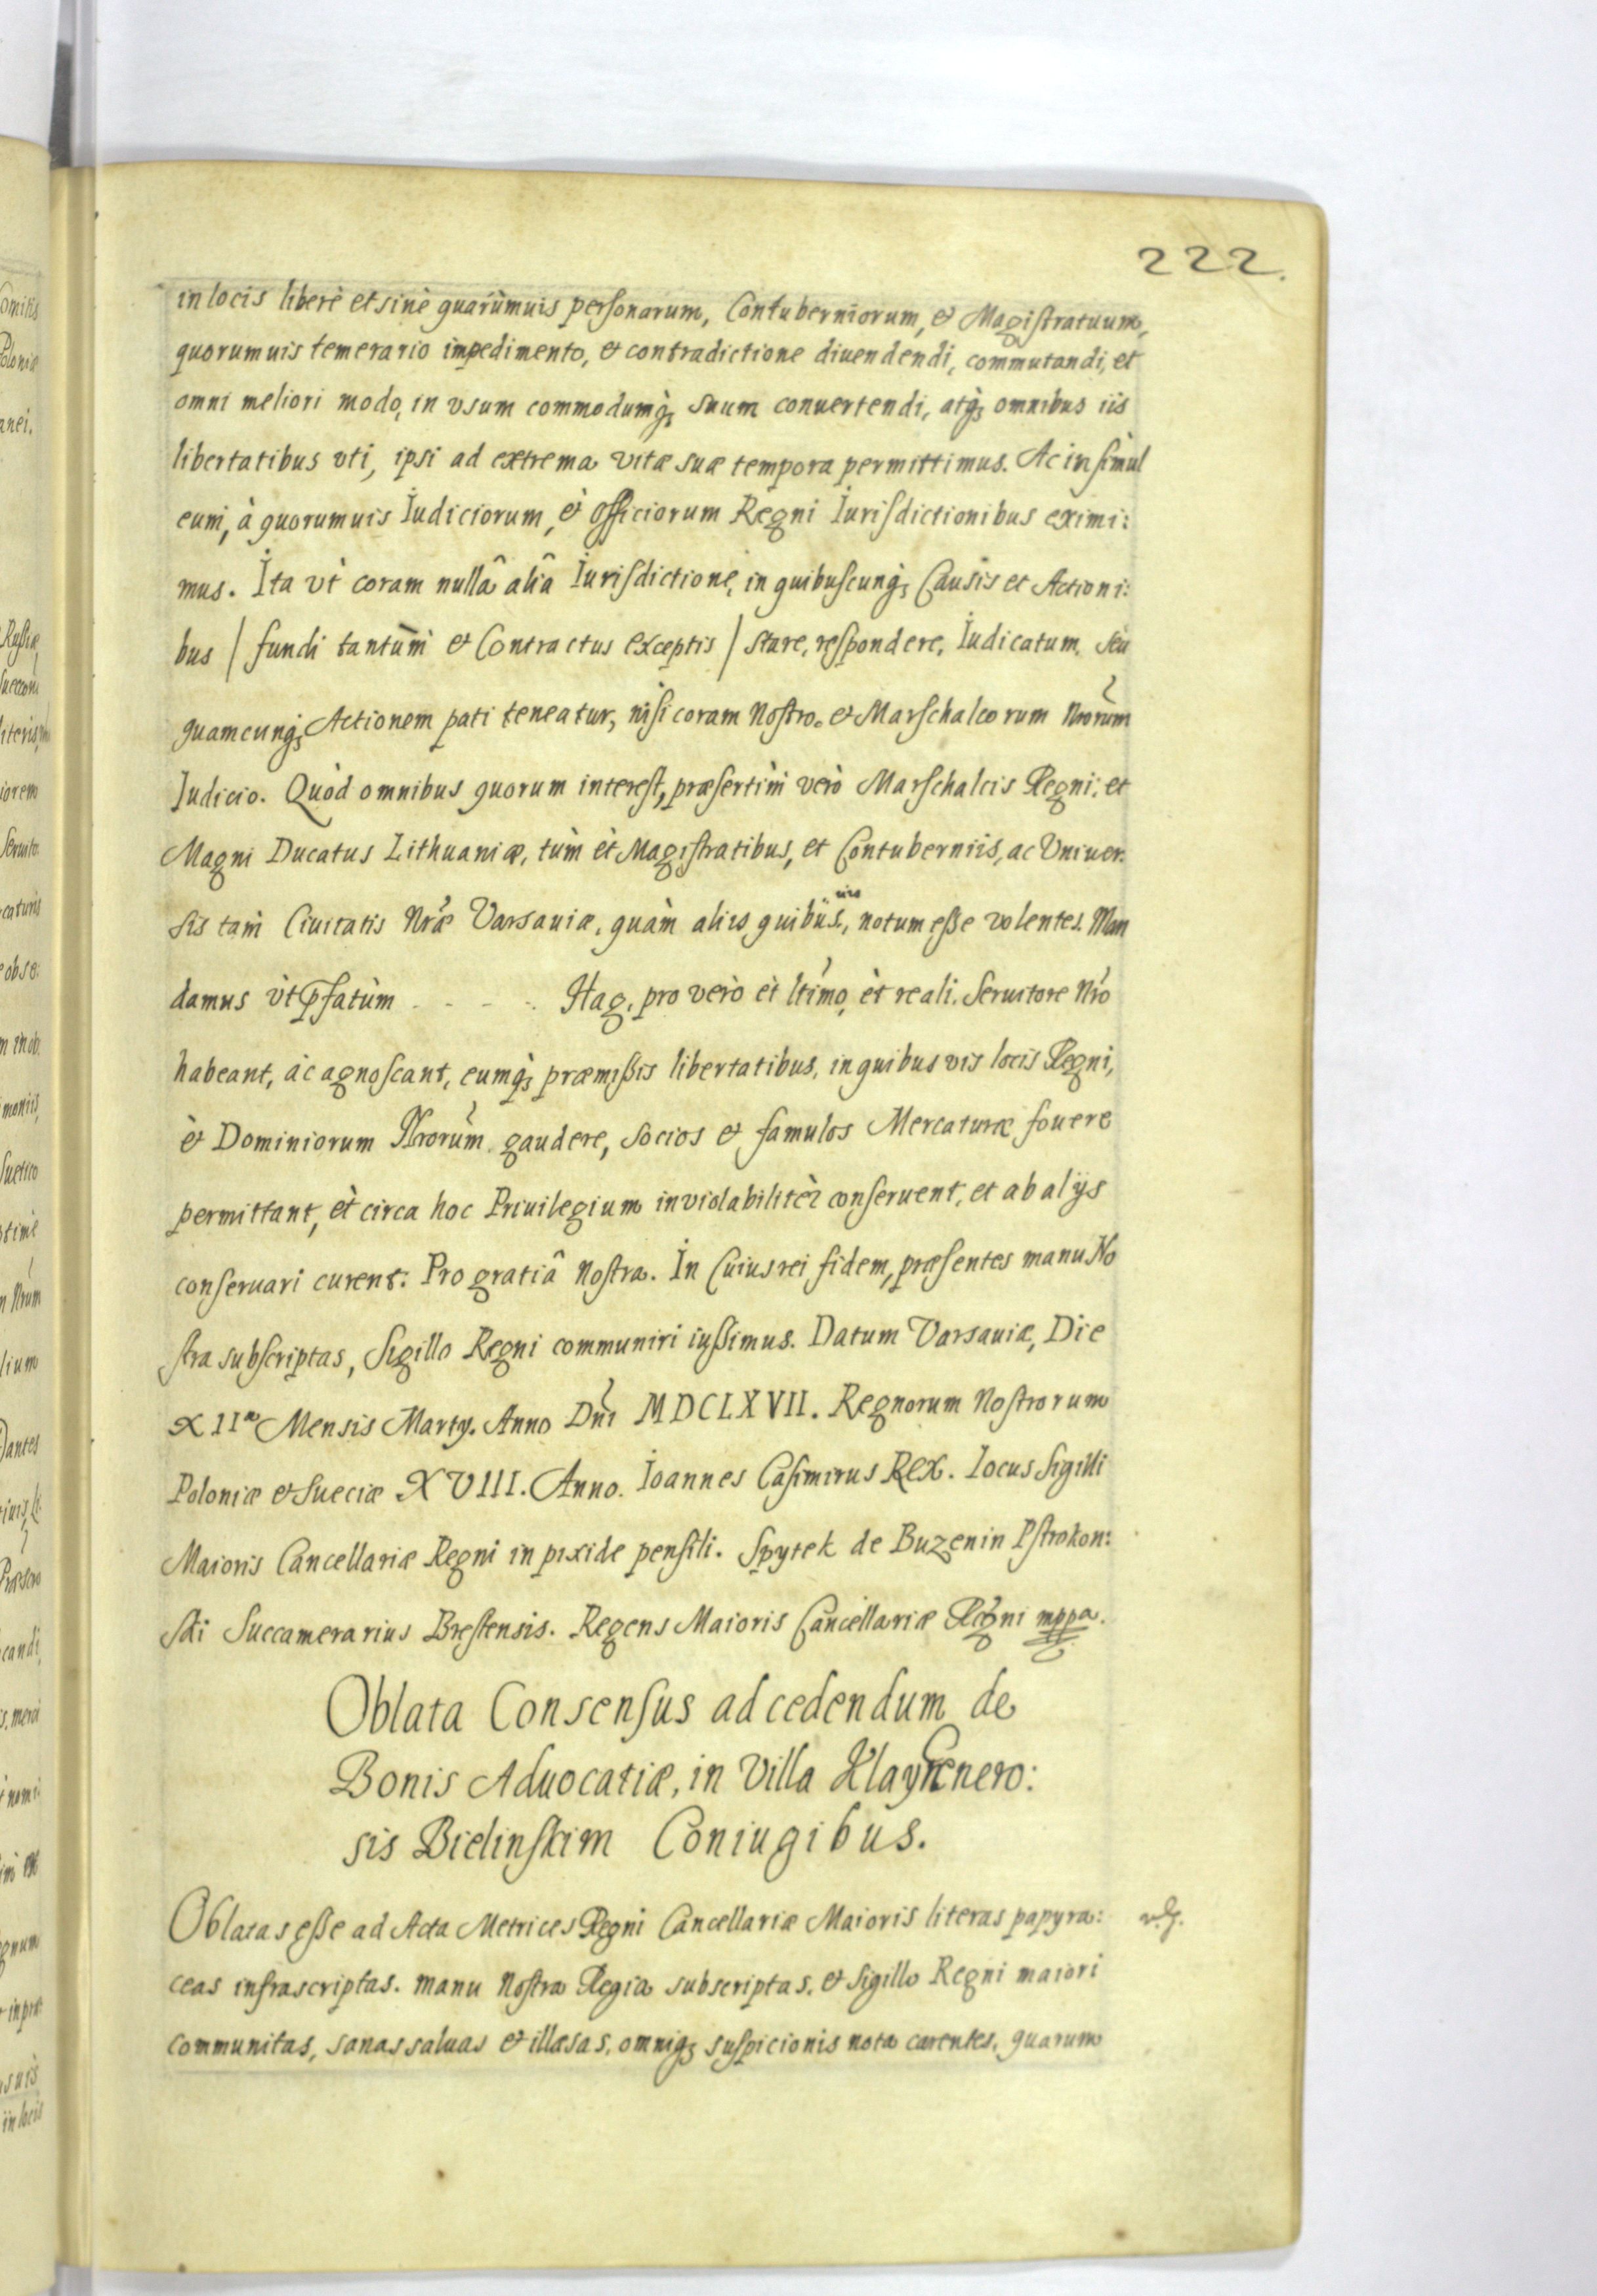 222.
in locis liberè et sinè quarùmuis personarum, Contuberniorum, et Magistratuum,
quorumuis temerario impedimento, et contradictione diuendendi, commutandi, et
omni meliori modo, in vsum commodumq̀; suum conuertendi, atq̀; omnibus iis
libertatibus vti, ipsi ad extrema vitæ suæ tempora permittimus. Ac insimùl
eum, à quorumuis Iudiciorum, et officiorum Regni Iurisdictionibus eximi:
mus. Ita vt̀ coram nullâ aliâ Iurisdictione, in quibuscunq̀; Causis et Actioni:
bus / fundi tantùm et Contractus exceptis / stare, respondere, Iudicatum, seu
quamcunq̀; Actionem pati teneatur, nisi coram Nostro, et Marschalcorum Nrorum
Iudicio. Quòd omnibus quorum interest, præsertìm verò Marschalcis Regni, et
Magni Ducatus Lithuaniæ, tùm et̀ Magistratibus, et Contuberniis, ac Vniuer:
sis tàm Ciuitatis Nræ Varsauiæ, quàm aliis quibusuis, notum esse volentes. Man
damus vt̀ pfatùm - - - - Hag, pro verò et̀ ltimo, et̀ reali Seruitore Nro
habeant, àc agnoscant, eumq̀; præmissis libertatibus, in quibus vis locis Regni,
et Dominiorum Nrorum gaudere, Socios et famulos Mercaturæ fouere
permittant, et̀ circa hoc Priuilegium inviolabilitèr conseruent, et ab alijs
conseruari curent. Pro gratiâ Nostra. In Cuius rei fidem, præsentes manu No
stra subscriptas, Sigillo Regni communiri iussimus. Datum Varsauiæ, Die
XIIa Mensis Martij. Anno Dni MDCLXVII. Regnorum Nostrorum
Poloniæ et Sueciæ XVIII. Anno. Ioannes Casimirus Rex. Locus Sigilli
Maioris Cancellariæ Regni in pixide pensili. Spytek de Buzenin Pstrokon:
ski Succamerarius Brestensis. Regens Maioris Cancellariæ Regni mppa.
Oblata Consensus ad cedendum de
Bonis Aduocatiæ, in Villa Genero:
sis Bielinskim Coniugibus.
Oblatas esse ad Acta Metrices Regni Cancellariæ Maioris literas papyra:
ceas infrascriptas. manu Nostra Regia subscriptas, et Sigillo Regni maiori
communitas, sanas saluas et illæsas, omniq; suspicionis nota carentes, quarum